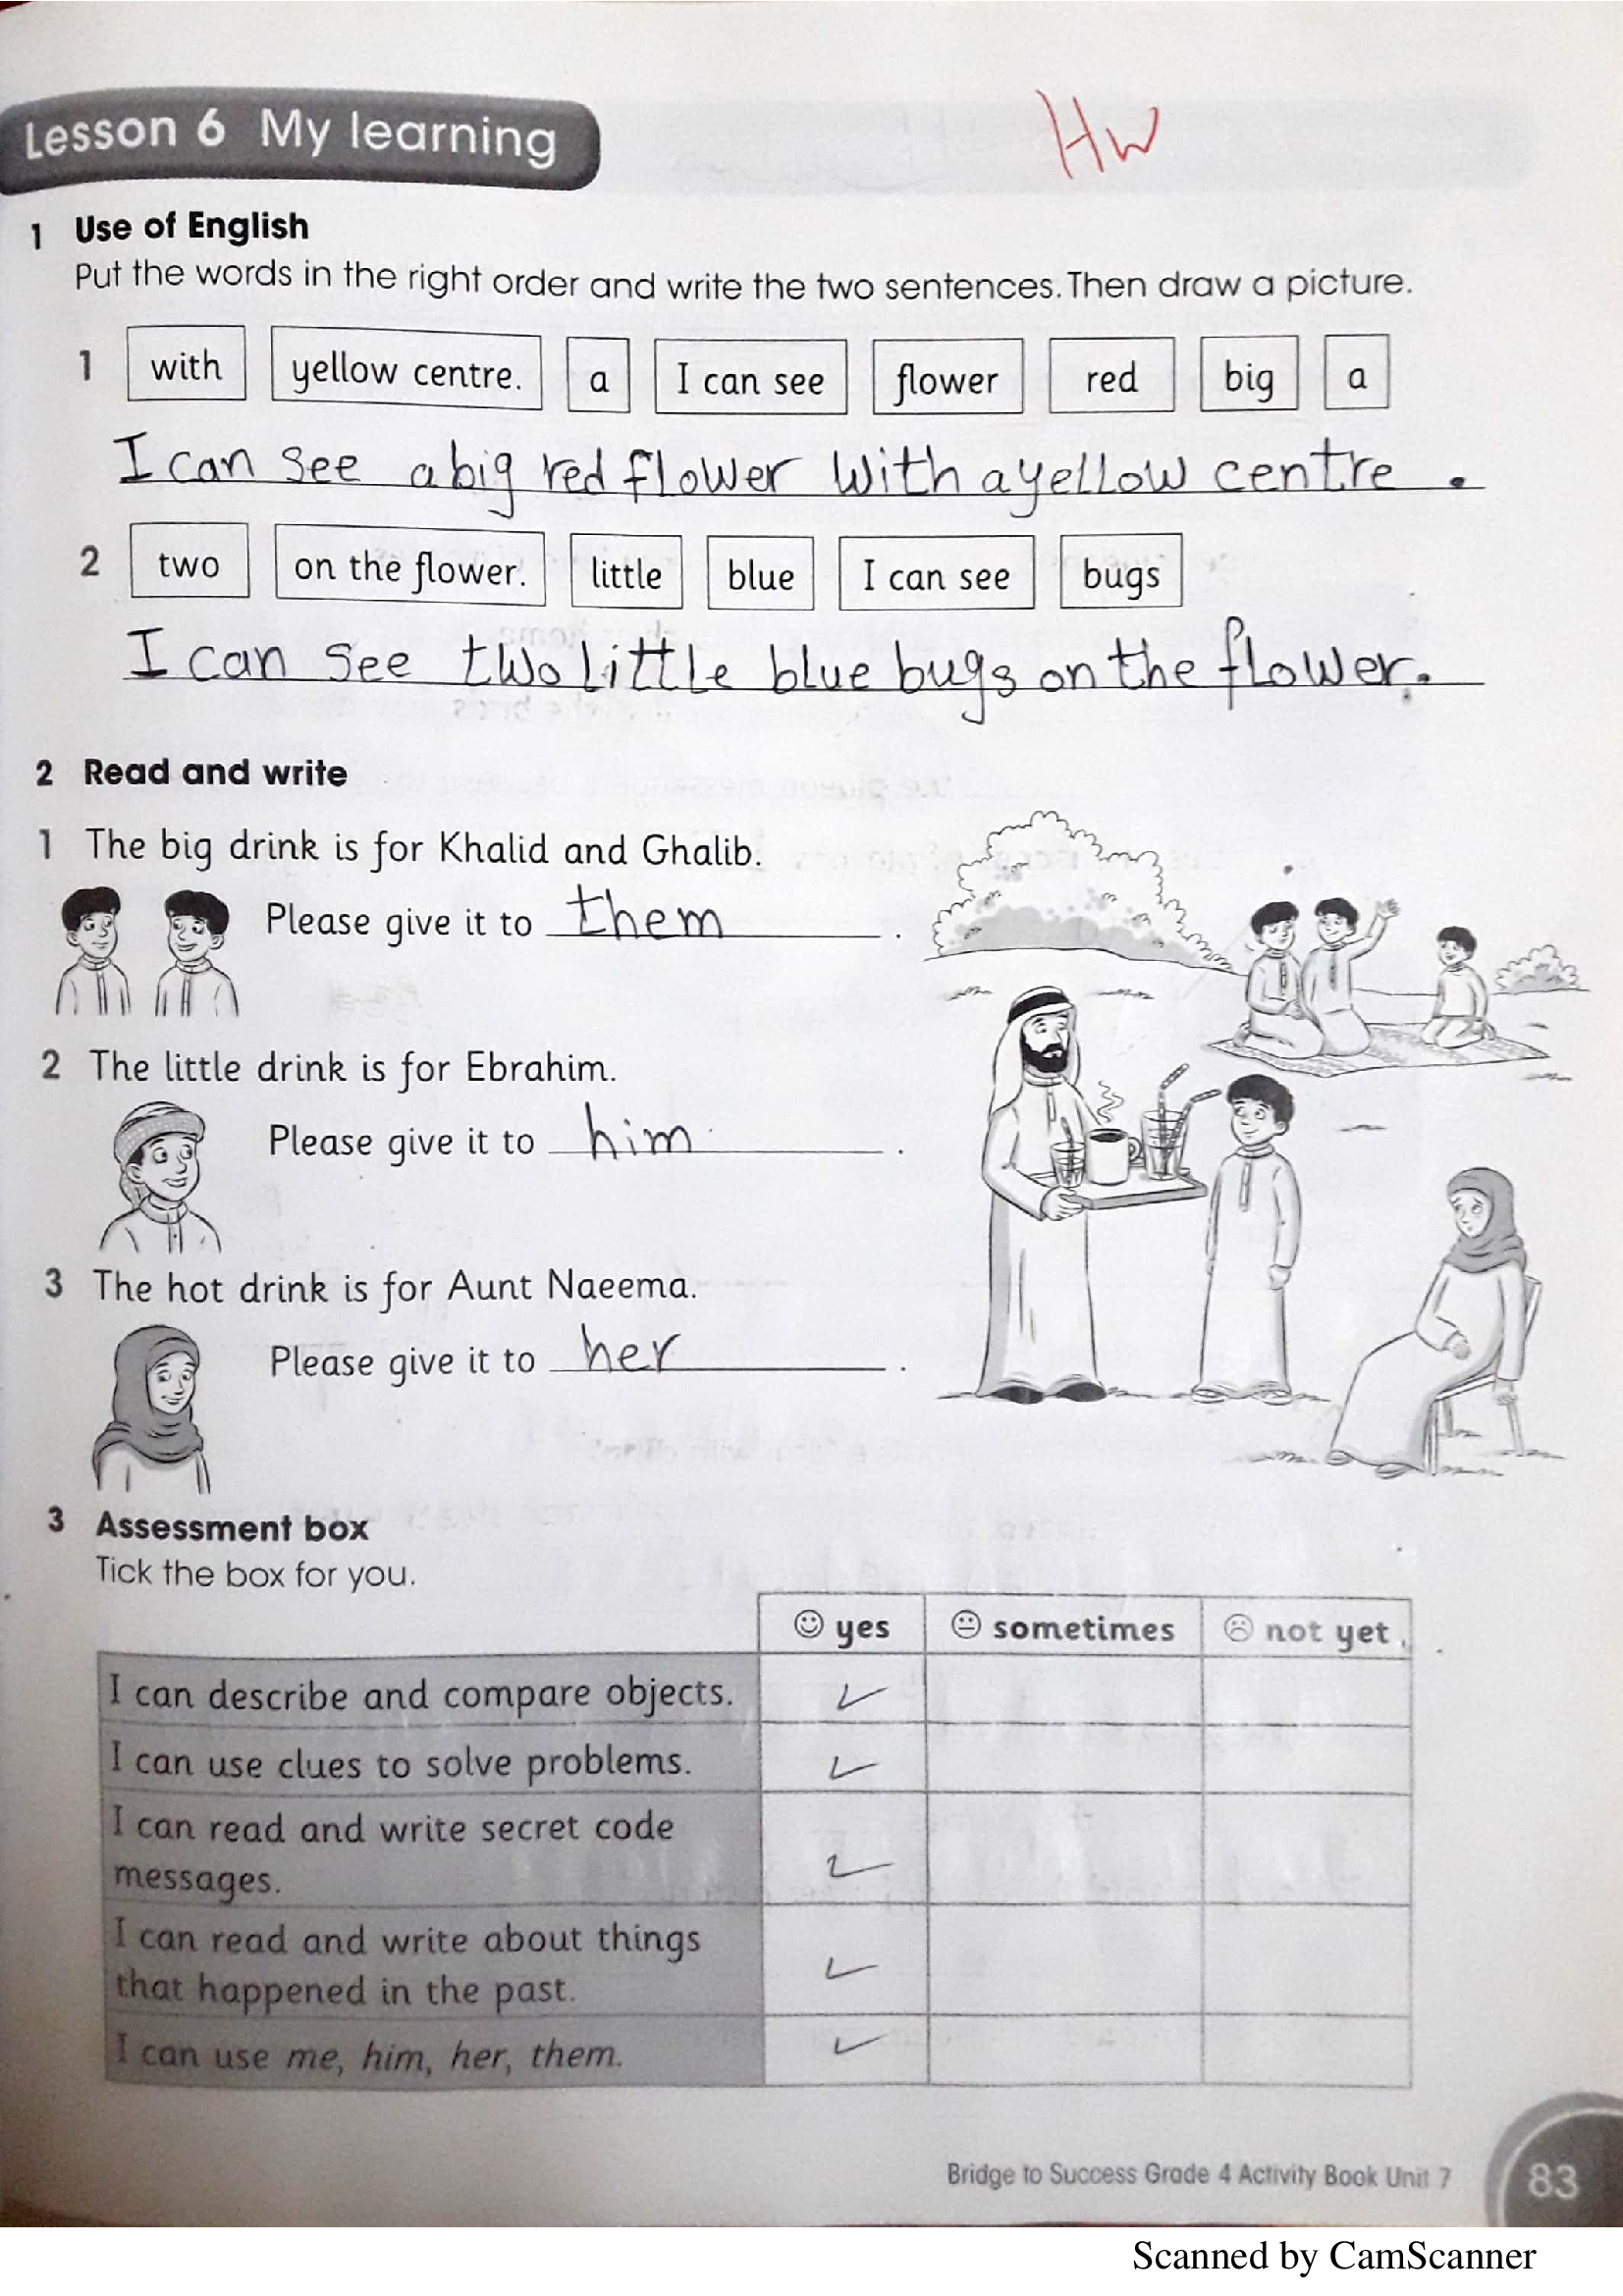 Lesson 6 My learning
HW
1 Use of English
Put the words in the right order and write the two sentences. Then draw a picture.
1 with yellow centre. a I can see flower red big a
I can see a big red flower with a yellow centre .
2 two on the flower. little blue I can see bugs
I can see two little blue bugs on the flower.
2 Read and write
1 The big drink is for Khalid and Ghalib.
Please give it to them .
2 The little drink is for Ebrahim.
Please give it to him .
3 The hot drink is for Aunt Naeema.
Please give it to her .
3 Assessment box
Tick the box for you.
yes sometimes not yet
I can describe and compare objects. ✓
I can use clues to solve problems. ✓
I can read and write secret code
messages. ✓
I can read and write about things
that happened in the past. ✓
I can use me, him, her, them. ✓
Bridge to Success Grade 4 Activity Book Unit 7 83
Scanned by CamScanner